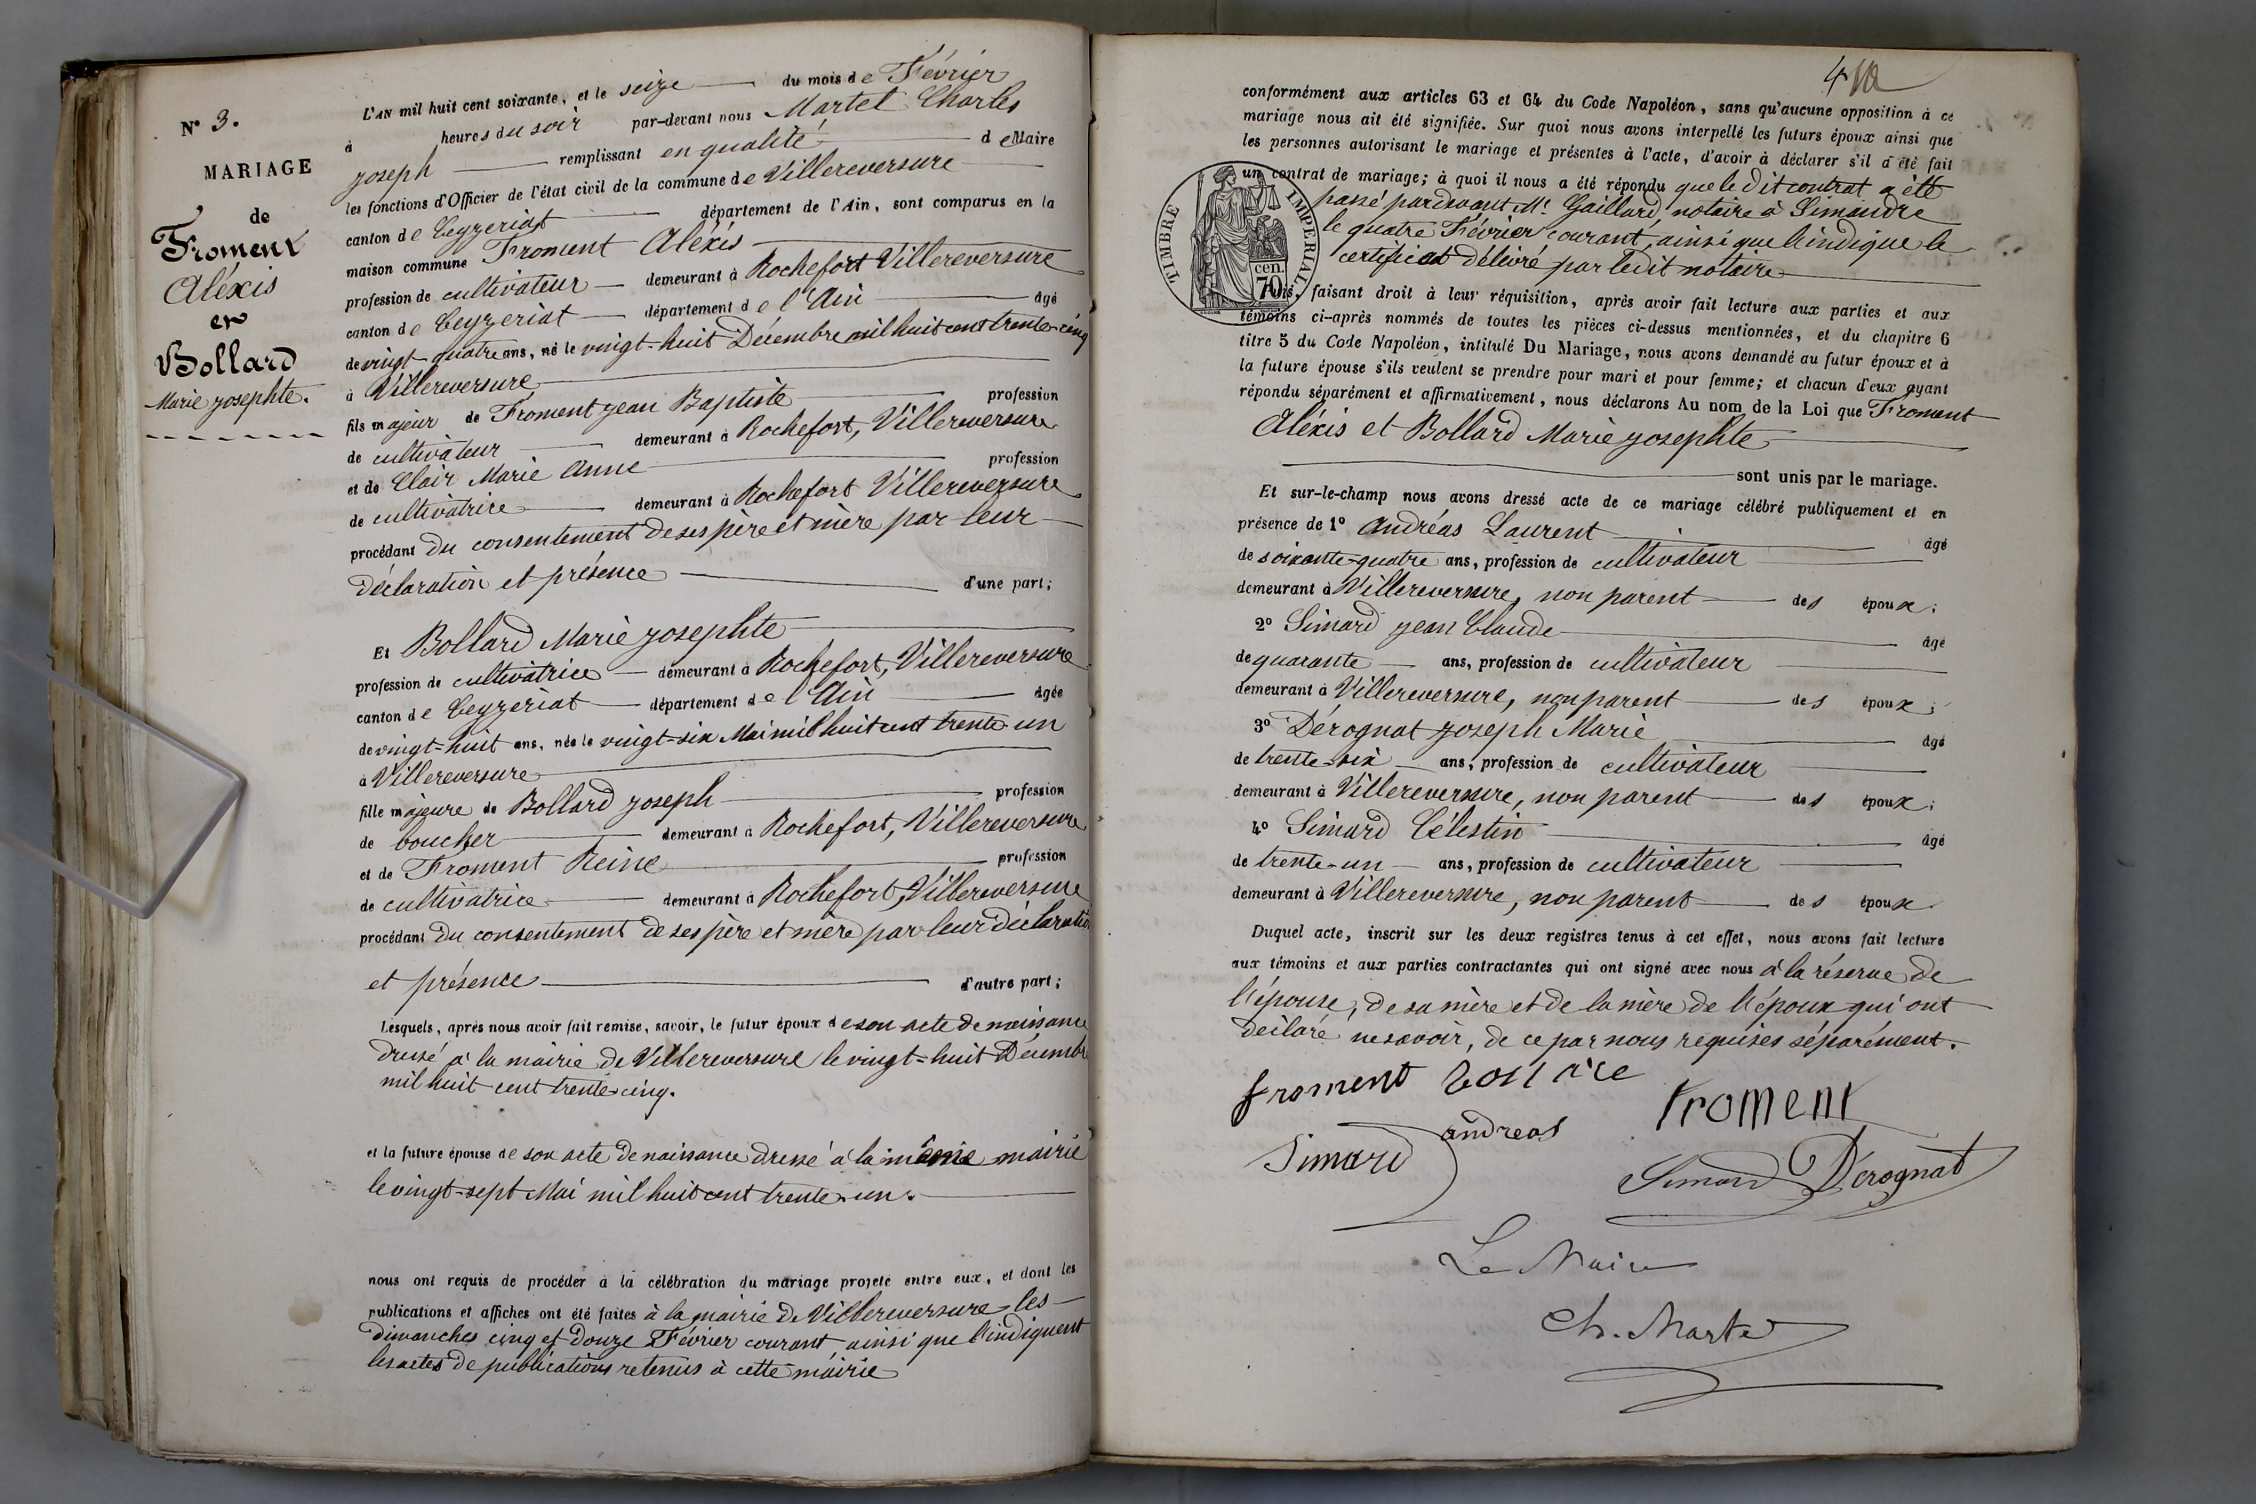 N° 3.
MARIAGE
de
Froment
Aléxis
et
Bollard
Marie Josephte.
L'AN mil huit cent soixante, et le seize du mois de Février
à heures du soir par-devant nous Martel Charles
joseph remplissant en qualité de Maire
les fonctions d'Officier de l'état civil de la commune de Villereversure
canton de Ceyzeriat département de l'Ain, sont comparus en la
maison commune Froment Aléxis
profession de cultivateur demeurant à Rochefort Villereversure
canton de Ceyzeriat département de l'Ain âgé
de vingt-quatre ans, né le vingt-huit Décembre mil huit cent trente-cinq
à Villereversure
fils majeur de Froment Jean Baptiste profession
de cultivateur demeurant à Rochefort, Villereversure
et de Clair Marie Anne profession
de cultivatrice demeurant à Rochefort Villereversure
procédant du consentement de ses père et mère par leur
déclaration et présence d'une part;
Et Bollard Marie Josephte
profession de cultivatrice demeurant à Rochefort, Villereversure
canton de Ceyzériat département de l'Ain âgée
de vingt-huit ans, née le vingt-six Mai mil huit cent trente-un
à Villereversure
fille majeure de Bollard Joseph profession
de boucher demeurant à Rochefort, Villereversure
et de Froment Reine profession
de cultivatrice demeurant à Rochefort, Villereversure
procédant du consentement de ses père et mère par leur déclaration
et présence d'autre part;
Lesquels, après nous avoir fait remise, savoir, le futur époux de son acte de naissance
dressé à la mairie de Villereversure le vingt-huit Décembre
mil huit cent trente-cinq.
et la future épouse de son acte de naissance dressé à la même mairie
le vingt-sept Mai mil huit cent trente-un.
nous ont requis de procéder à la célébration du mariage projeté entre eux, et dont les
publications et affiches ont été faites à la mairie de Villereversure les
dimanches cinq et douze Février courant, ainsi que l'indiquent
les actes de publications retenus à cette mairie
conformément aux articles 63 et 64 du Code Napoléon, sans qu'aucune opposition à ce
mariage nous ait été signifiée. Sur quoi nous avons interpellé les futurs époux ainsi que
les personnes autorisant le mariage et présentes à l'acte, d'avoir à déclarer s'il a été fait
un contrat de mariage; à quoi il nous a été répondu que le dit contrat a été
passé pardevant Me. Gaillard, notaire à Simandre
le quatre Février courant, ainsi que l'indique le
certificat délivré par ledit notaire
TIMBRE IMPERIAL
70 cen.
Puis, faisant droit à leur réquisition, après avoir fait lecture aux parties et aux
témoins ci-après nommés de toutes les pièces ci-dessus mentionnées, et du chapitre 6
titre 5 du Code Napoléon, intitulé Du Mariage, nous avons demandé au futur époux et à
la future épouse s'ils veulent se prendre pour mari et pour femme; et chacun d'eux ayant
répondu séparément et affirmativement, nous déclarons Au nom de la Loi que Froment
Aléxis et Bollard Marie Josephte
sont unis par le mariage.
Et sur-le-champ nous avons dressé acte de ce mariage célébré publiquement et en
présence de 1° Andréas Laurent âgé
de soixante-quatre ans, profession de cultivateur
demeurant à Villereversure, non parent des époux;
2° Simard Jean Claude âgé
de quarante ans, profession de cultivateur
demeurant à Villereversure, non parent des époux;
3° Dérognat Joseph Marie âgé
de trente-six ans, profession de cultivateur
demeurant à Villereversure, non parent des époux;
4° Simard Célestin âgé
de trente-un ans, profession de cultivateur
demeurant à Villereversure, non parent des époux
Duquel acte, inscrit sur les deux registres tenus à cet effet, nous avons fait lecture
aux témoins et aux parties contractantes qui ont signé avec nous à la réserve de
l'épouse, de sa mère et de la mère de l'époux qui ont
déclaré ne savoir, de ce par nous requises séparément.
froment froment
andreas
Simard Simard Dérognat
Le Maire
Ch. Martel